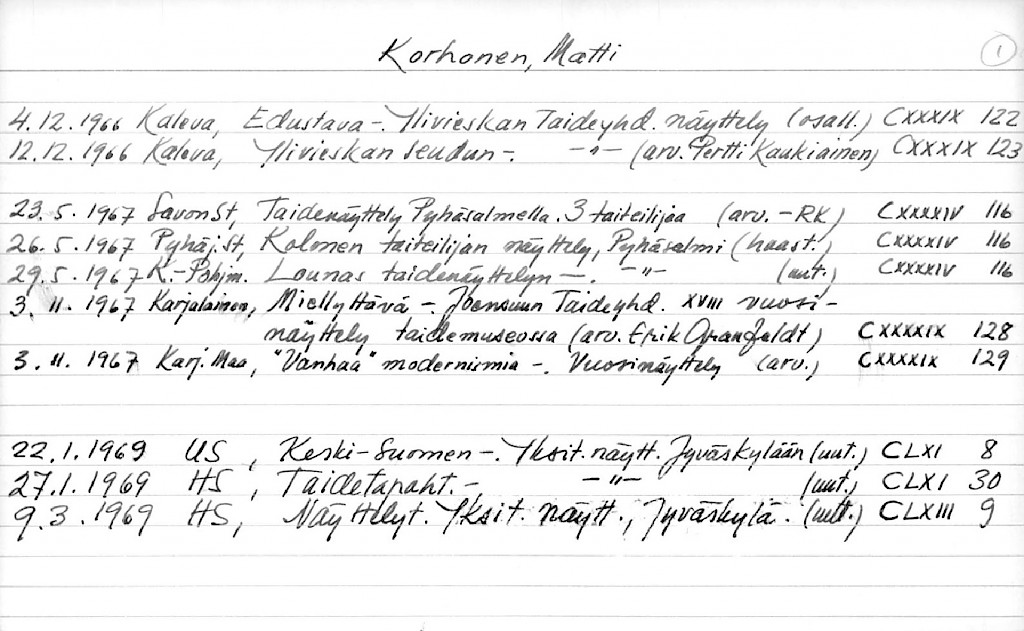 Korhonen, Matti 1
4.12.1966 Kaleva, Edustava -. Ylivieskan Taideyhd. näyttely (osall.) CXXXIX 122
12.12.1966 Kaleva, Ylivieskan seudun -. -"- (arv. Pertti Kaukiainen) CXXXIX 123
23.5.1967 Savon St, Taidenäyttely Pyhäsalmella. 3 taiteilijaa (arv. - RK) CXXXXIV 116
26.5.1967 Pyhäj. St, Kolmen taiteilijan näyttely, Pyhäsalmi (haast.) CXXXXIV 116
29.5.1967 K.-Pohjm. Lounas taidenäyttelyn -. -"- (uut.) CXXXXIV 116
3.11.1967 Karjalainen, Miellyttävä -. Joensuun Taideyhd. XVIII vuosi-
näyttely taidemuseossa (arv. Erik Granfeldt) CXXXXIX 128
3.11.1967 Karj. Maa, "Vanhaa" modernismia -. Vuosinäyttely (arv.) CXXXXIX 129
22.1.1969 US, Keski-Suomen -. Yksit. näytt. Jyväskylään (uut.) CLXI 8
27.1.1969 HS, Taidetapaht. -. -"- (uut.) CLXI 30
9.3.1969 HS, Näyttelyt. Yksit. näytt., Jyväskylä. (uut.) CLXIII 9